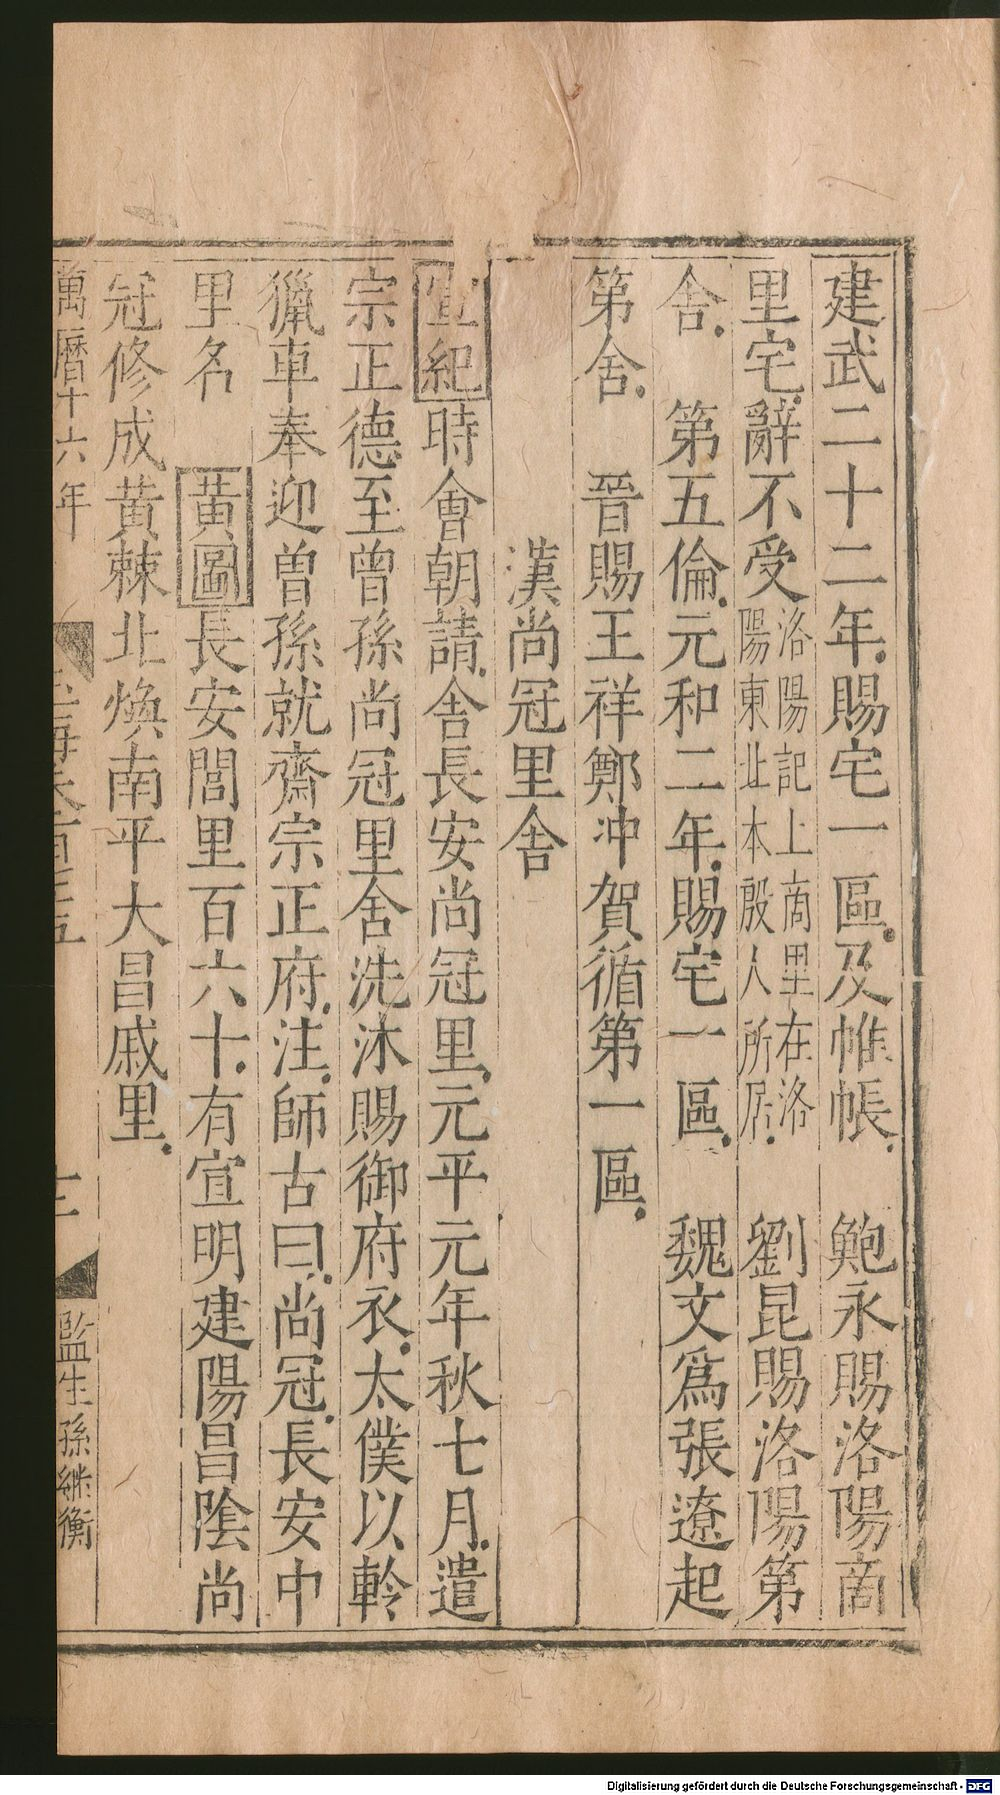 建武二十二年賜宅一區及帷帳　鮑永賜洛陽商
里宅辭不受洛陽記上商里在洛陽東北本殷人所居　劉昆賜洛陽第
舍　第五倫元和二年賜宅一區　魏文爲張遼起
第舍　晉賜王祥鄭沖賀循第一區
漢尚冠里舍
宣紀時會朝請舍長安尚冠里元平元年秋七月遣
宗正德至曾孫尚冠里舍洗沐賜御府衣太僕以軨
獵車奉迎曾孫就齋宗正府注師古曰尚冠長安中
里名　黃圖長安閭里百六十有宣明建陽昌陰尚
冠修成黃棘北煥南平大昌戚里
萬曆十六年
玉海卷百七十五
監生孫繼衡
Digitalisierung gefördert durch die Deutsche Forschungsgemeinschaft - DFG